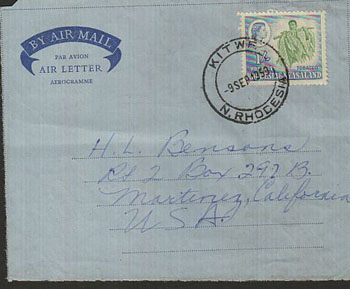 BY AIR MAIL
PAR AVION
AIR LETTER
AEROGRAMME
KITWE
9 SEP
N. RHODESIA
TOBACCO
NYASALAND
H. L. Bensons
Rt 2 Box 297 B.
Martinez, California
U.S.A.